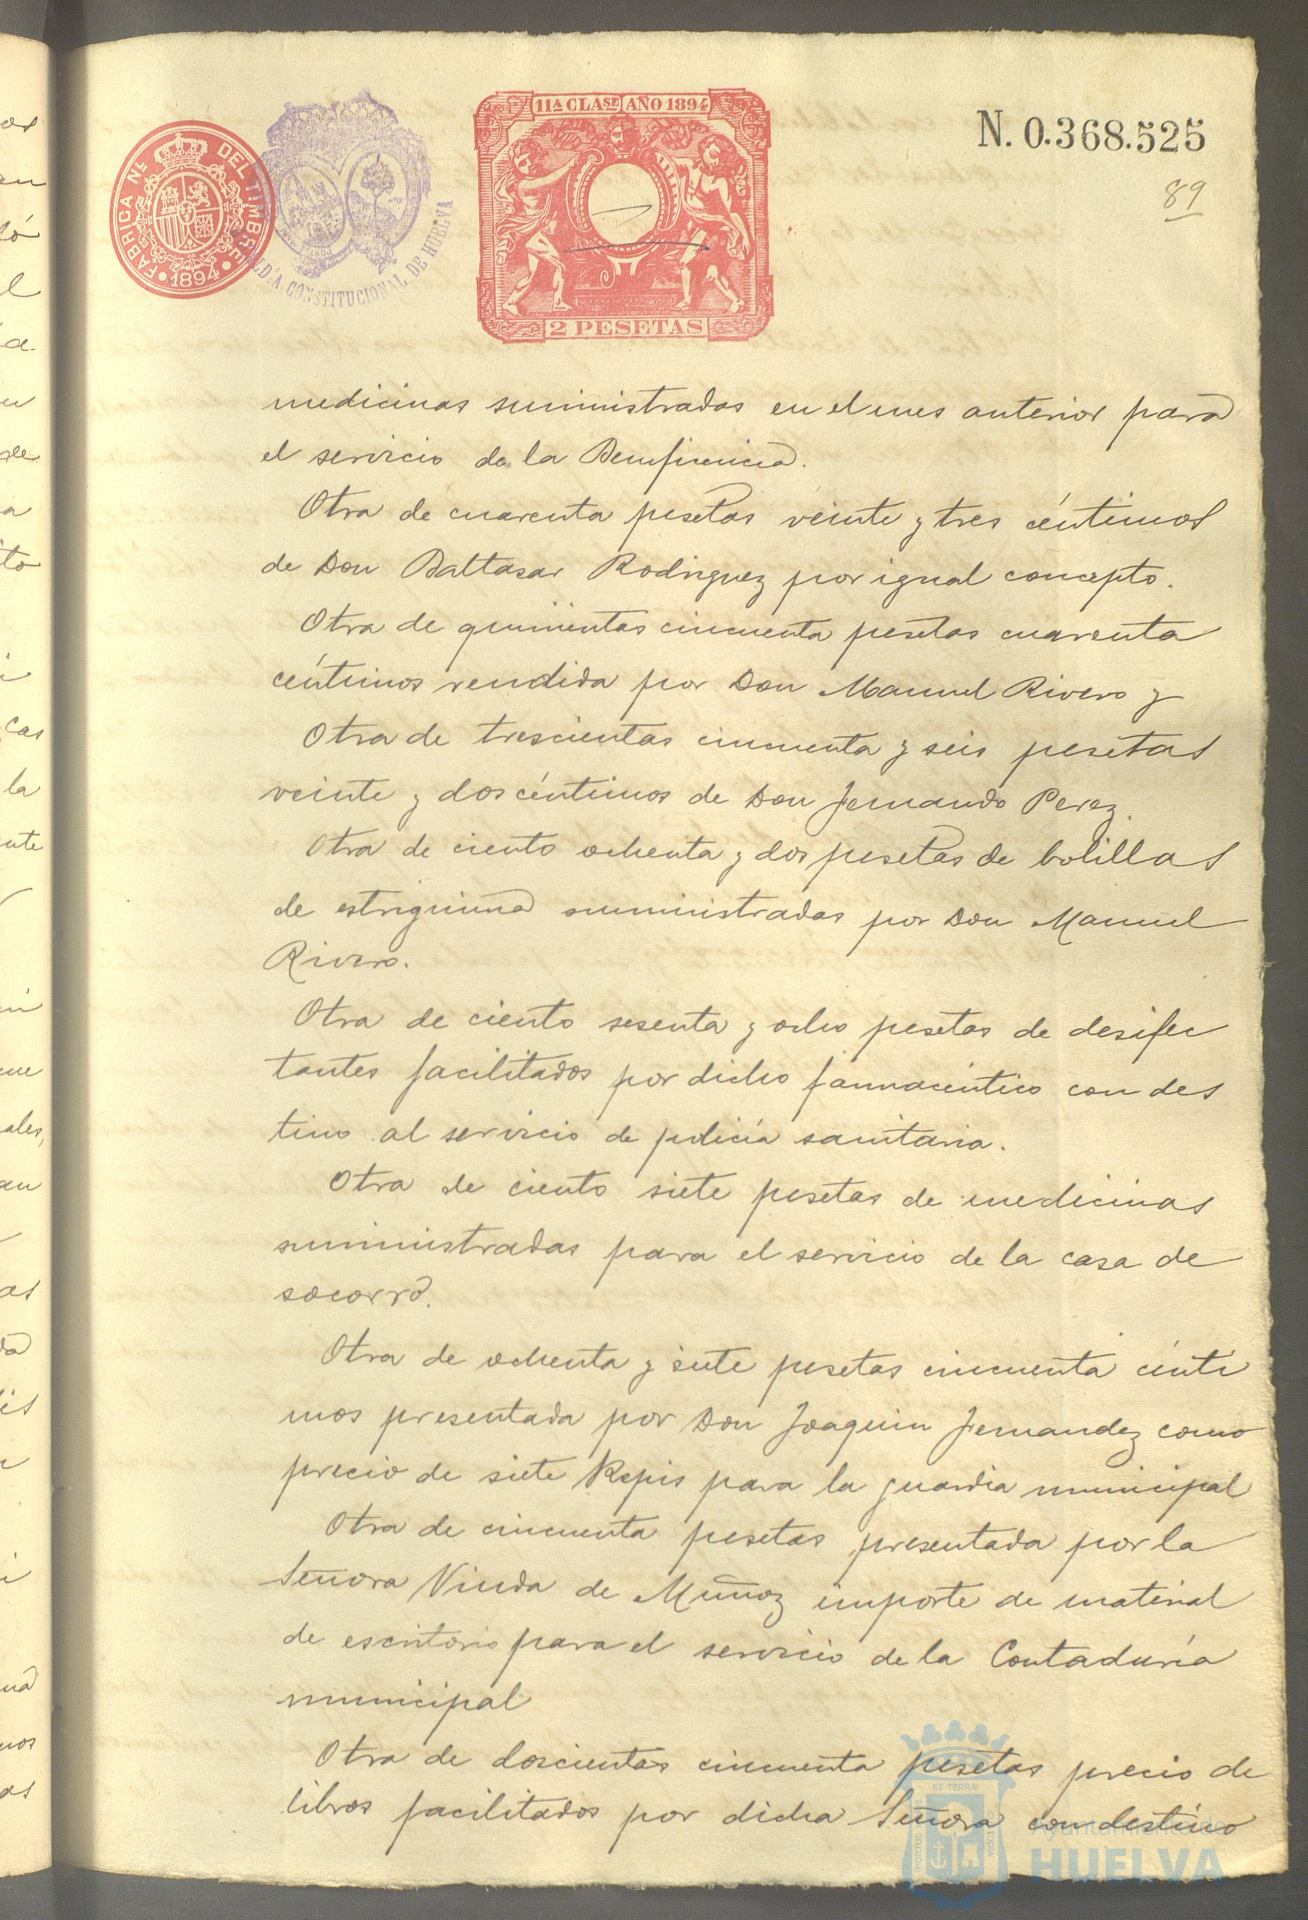 FABRICA NL. DEL TIMBRE
1894
ALCALDÍA CONSTITUCIONAL DE HUELVA
11ª CLASE AÑO 1894
2 PESETAS
N. 0.368.525
89
medicinas suministradas en el mes anterior para
el servicio de la Beneficencia.
Otra de cuarenta pesetas veinte y tres céntimos
de Don Baltasar Rodriguez por igual concepto.
Otra de quinientas cincuenta pesetas cuarenta
céntimos rendida por Don Manuel Rivero y
Otra de trescientas cincuenta y seis pesetas
veinte y dos céntimos de Don Fernando Perez.
Otra de ciento ochenta y dos pesetas de bolillas
de estriguina suministradas por Don Manuel
Rivero.
Otra de ciento sesenta y ocho pesetas de desifec
tantes facilitados por dicho farmacéutico con des
tino al servicio de policía sanitaria.
Otra de ciento siete pesetas de medicinas
suministradas para el servicio de la casa de
socorro.
Otra de ochenta y siete pesetas cincuenta cénti
mos presentada por Don Joaquin Fernandez como
precio de siete Kepis para la guardia municipal
Otra de cincuenta pesetas presentada por la
Señora Viuda de Muñoz importe de material
de escritorio para el servicio de la Contaduría
municipal
Otra de doscientas cincuenta pesetas precio de
libros facilitados por dicha Señora con destino
Ayuntamiento de
HUELVA